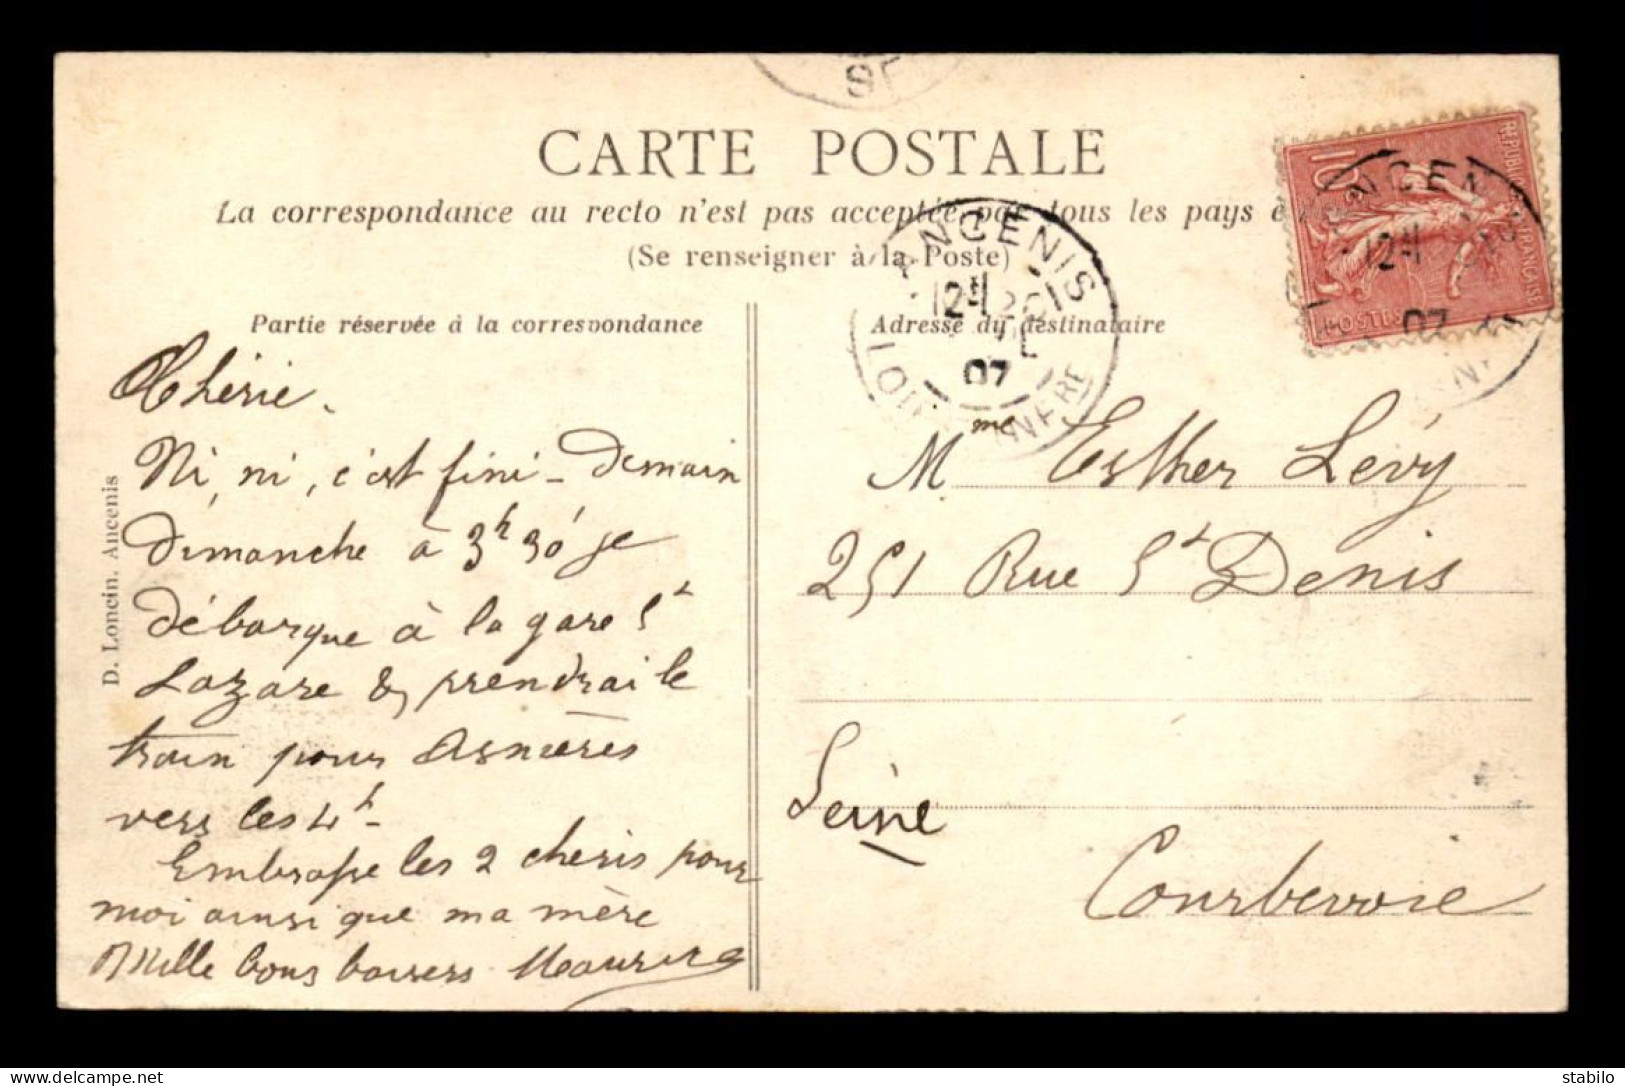 CARTE POSTALE
La correspondance au recto n'est pas acceptée par tous les pays é
(Se renseigner à la Poste)
Partie réservée à la correspondance
Chérie.
Ni, ni, c'est fini - Demain
dimanche à 3h 30' je
débarque à la gare St
Lazare & prendrai le
train pour Asnières
vers les 4h -
Embrasse les 2 chéris pour
moi ainsi que ma mère
Mille bons baisers Maurice
D. Loncin. Ancenis
Adresse du destinataire
Mme Esther Lévy
251 Rue St Denis
Seine
Courbevoie
ANCENIS
12
07
LOIRE INFRE
10
RÉPUBLIQUE FRANÇAISE
POSTES
ANCENIS
12
07
stabilo | delcampe.net